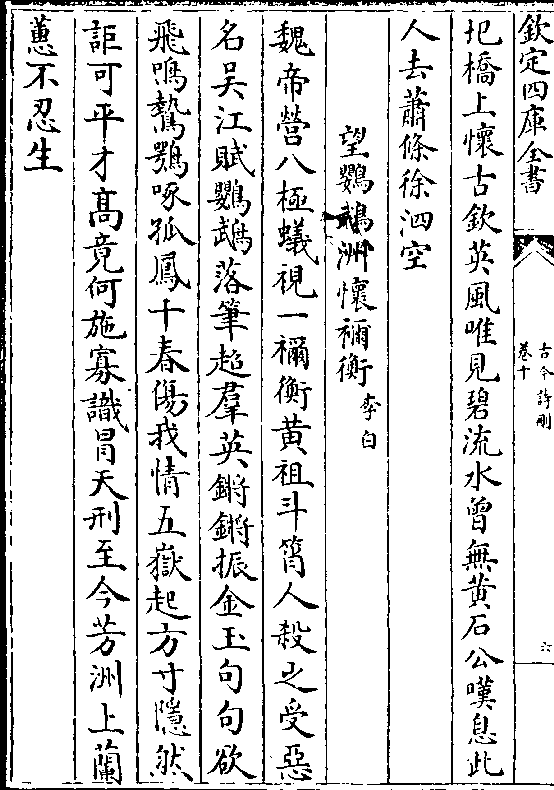 欽定四庫全書
古今詩刪
卷十
六
圯橋上懷古欽英風唯見碧流水曾無黄石公嘆息此
人去蕭條徐泗空
望鸚鵡洲懷禰衡 李白
魏帝營八極蟻視一禰衡黄祖斗筲人殺之受惡
名吴江賦鸚鵡落筆超羣英鏘鏘振金玉句句欲
飛鳴鷙鶚啄孤鳳十春傷我情五嶽起方寸隱然
詎可平才髙竟何施寡識冐天刑至今芳洲上蘭
蕙不忍生